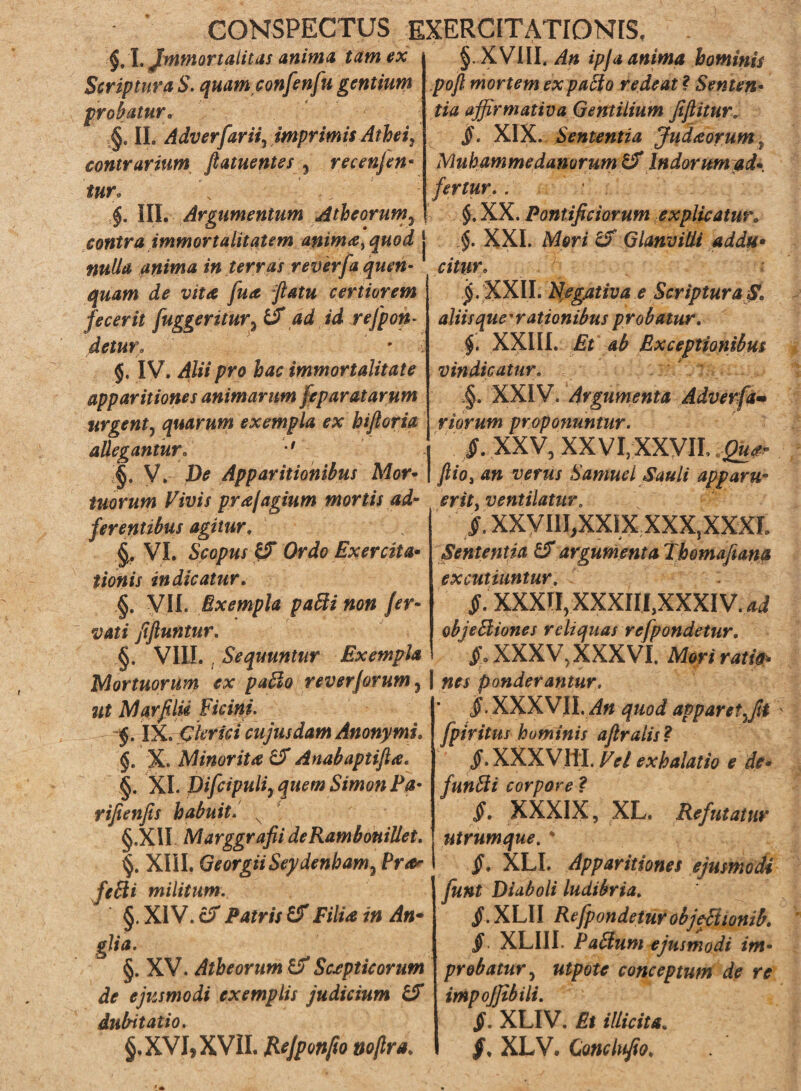 CONSPECTUS EXERCITATIONIS.
§. I. Jmmortalitas animæ tam ex
Scriptura S. quam confenfu gentium
probatur.
§. II. Adverfarii, imprimis Athei,
contrarium ftatuentes, recenfen-
tur.
§. III. Argumentum Atheorum,
contra immortalitatem animæ, quod
nulla anima in terras reverfa quen-
quam de vitæ fuæ ftatu certiorem
fecerit fuggeritur, & ad id refpon-
detur.
§. IV. Alii pro hac immortalitate
apparitiones animarum feparatarum
urgent, quarum exempla ex hiftoria
allegantur.
§. V. De Apparitionibus Mor-
tuorum Vivis præfagium mortis ad-
ferentibus agitur.
§. VI. Scopus & Ordo Exercita-
tionis indicatur.
§. VII. Exempla pacti non fer-
vati fiftuntur.
§. VIII. Sequuntur Exempla
Mortuorum ex pacto reverforum,
ut Marfilii Ficini.
§. IX. Clerici cujusdam Anonymi.
§. X. Minoritæ & Anabaptiftæ.
§. XI. Difcipuli, quem Simon Pa-
rifienfis habuit.
§. XII Marggrafii de Rambouillet.
§. XIII. Georgii Seydenham, Præ-
fecti militum.
§. XIV. & Patris & Filiæ in An-
glia.
§. XV. Atheorum & Scepticorum
de ejusmodi exemplis judicium &
dubitatio.
§. XVI, XVII. Refponfio noftra.
§. XVIII. An ipfa anima hominis
poft mortem ex pacto redeat? Senten-
tia affirmativa Gentilium fiftitur.
§. XIX. Sententia Judæorum,
Muhammedanorum & Indorum ad-
fertur..
§. XX. Pontificiorum explicatur.
§. XXI. Mori & Glanvilli addu-
citur.
§. XXII. Negativa e Scriptura S.
aliisque rationibus probatur.
§. XXIII. Et ab Exceptionibus
vindicatur.
§. XXIV. Argumenta Adverfa-
riorum proponuntur.
§. XXV, XXVI, XXVII. Quæ-
ftio, an verus Samuel Sauli apparu-
erit, ventilatur.
§. XXVIII, XXIX. XXX, XXXI.
Sententia & argumenta Thomafiana
excutiuntur.
§. XXXII, XXXIII, XXXIV. ad
objectiones reliquas refpondetur.
§. XXXV, XXXVI. Mori ratio-
nes ponderantur.
§. XXXVII. An quod apparet, fit
fpiritus hominis aftralis?
§. XXXVIII. Vel exhalatio e de-
functi corpore?
§. XXXIX, XL. Refutatur
utrumque.
§. XLI. Apparitiones ejusmodi
funt Diaboli ludibria.
§. XLII Refpondetur objectionib.
§ XLIII. Pactum ejusmodi im-
probatur, utpote conceptum de re
impoffibili.
§. XLIV. Et illicita.
§. XLV. Conclufio.